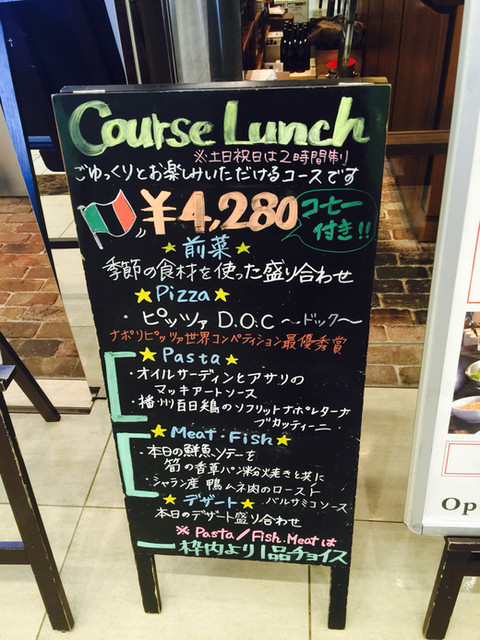 Course Lunch
※土日祝日は2時間制り
ごゆっくりとお楽しみいただけるコースです
¥4,280
コーヒー
付き!!
★前菜★
季節の食材を使った盛り合わせ
★Pizza★
・ピッツァ D.O.C 〜ドック〜
ナポリピッツァ世界コンペティション最優秀賞
★Pasta★
・オイルサーディンとアサリの
マッキアートソース
・播州百日鶏のソフリットナポレターナ
ブカッティーニ
★Meat・Fish★
・本日の鮮魚ソテーを
筍の香草パン粉焼きと共に
・シャラン産 鴨ムネ肉のロースト
バルサミコソース
★デザート★
本日のデザート盛り合わせ
※Pasta/Fish.Meatは
枠内より1品チョイス
Op